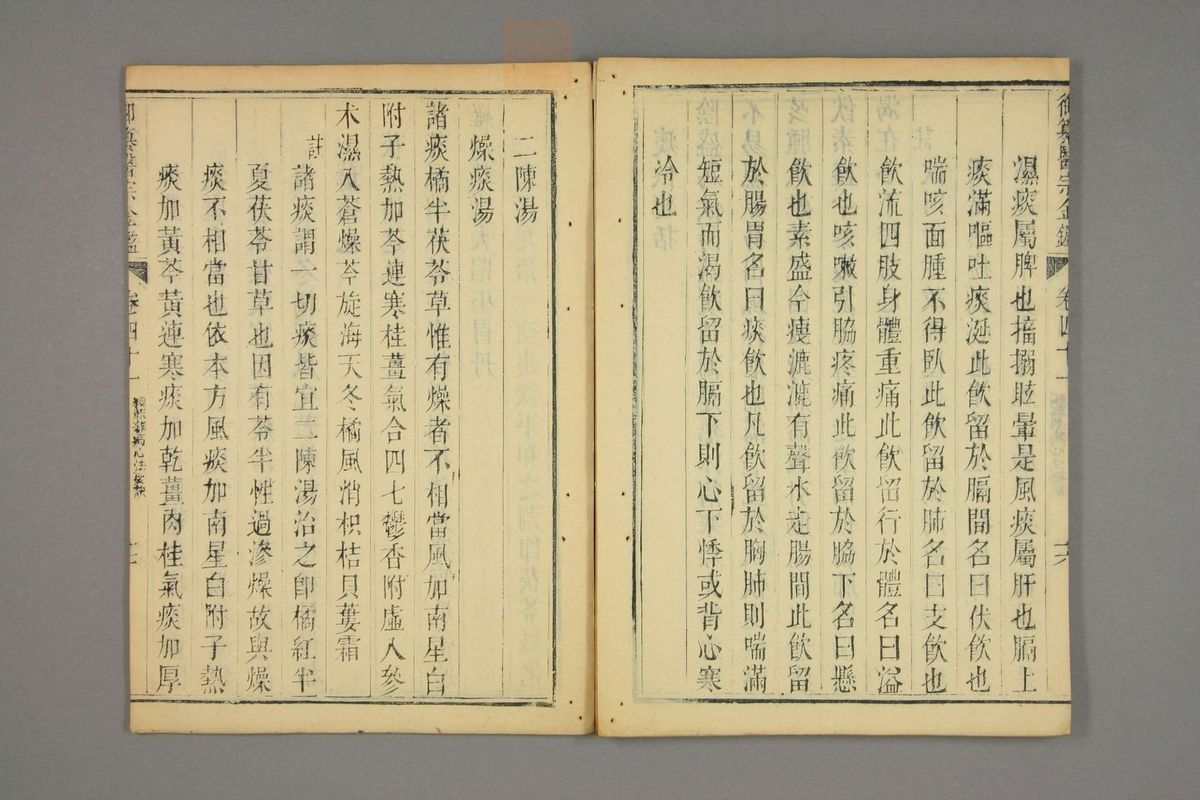 御纂醫宗金鑑 卷四十一
濕痰屬脾也搐搦眩暈是風痰屬肝也膈上
痰滿嘔吐痰涎此飲留於膈間名曰伏飲也
喘咳面腫不得臥此飲留於肺名曰支飲也
飲流四肢身體重痛此飲留行於體名曰溢
飲也咳嗽引脇疼痛此飲留於脇下名曰懸
飲也素盛今瘦漉漉有聲水走腸間此飲留
於腸胃名曰痰飲也凡飲留於胸肺則喘滿
短氣而渴飲留於膈下則心下悸或背心寒
冷也
二陳湯
燥痰湯
諸痰橘半茯苓草惟有燥者不相當風加南星白
附子熱加芩連寒桂薑氣合四七鬱香附虛入參
朮濕入蒼燥芩旋海天冬橘風悄枳桔貝蔞霜
註諸痰謂一切痰皆宜二陳湯治之卽橘紅半
夏茯苓甘草也因有苓半性過滲燥故與燥
痰不相當也依本方風痰加南星白附子熱
痰加黃芩黃連寒痰加乾薑肉桂氣痰加厚
御纂醫宗金鑑 卷四十一 編輯雜病心法要訣